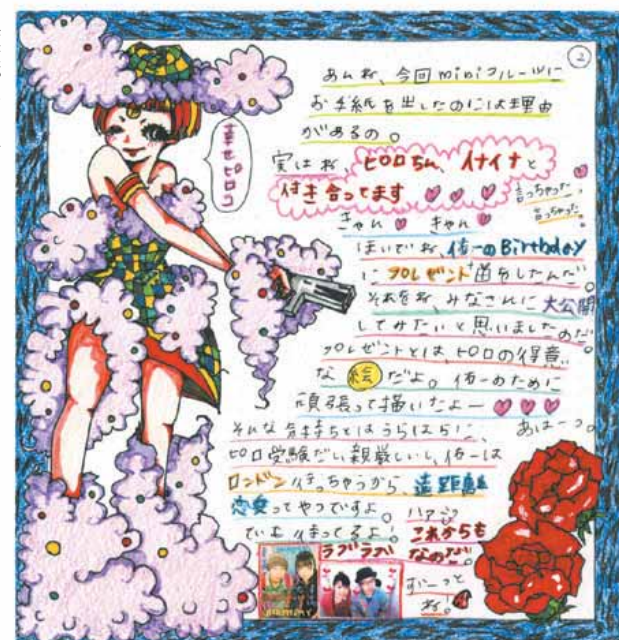 ②
あんね、今回miniフルーツに
お手紙を出したのには理由
があるの。
実はね ピロちん、イナイナと
付き合ってます ♡ ♡ ♡
言っちゃった。
言っちゃった。
きゃん♡ きゃん♡
ほいでね、侑一のBirthday
にプレゼント
したんだ。
それをね、みなさんに大公開
してみたいと思いましたのだ。
プレゼントとは、ピロの得意
な絵だよ。侑一のために
頑張って描いたよー♡♡♡
そんな気持ちとはうらはらに、
あはーっ。
ピロ受験だし親厳しいし、侑一は
ロンドン行っちゃうから、遠距離
恋愛ってやつですよ。
でも待ってるよ!
ラブラブ
これからも
なのだ。
ずーっと
ね。
幸せピロコ